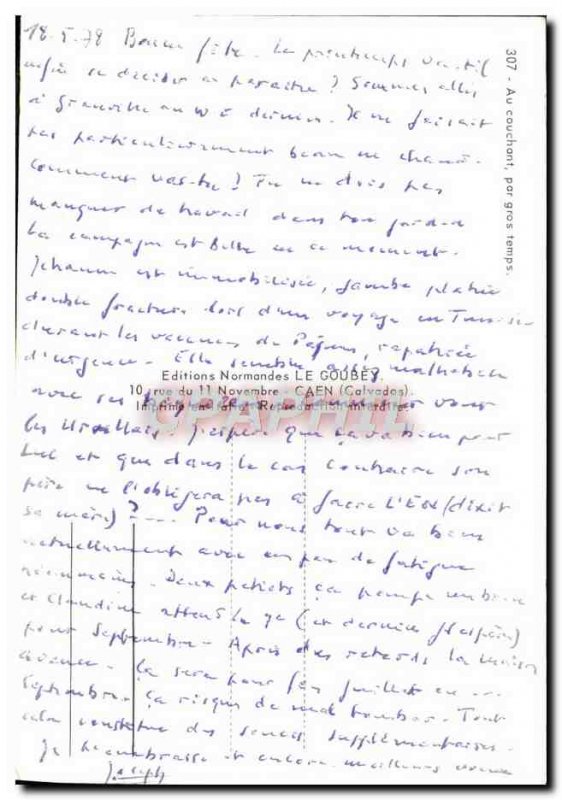 18.5.78 Bonne fête. Le printemps va-t-il
enfin se décider à paraître ? Sommes allés
à Granville au w à dernier. Il ne faisait
pas particulièrement beau ni chaud.
comment vas-tu ? Tu ne dois pas
manquer de travail dans ton jardin
la campagne est belle en ce moment.
est immobilisée, jambe plâtrée
double fracture lors d'un voyage en Tunisie
durant les vacances de Pâques, rapatriée
d'urgence. Elle semble assez malheureuse
avec ses
les J'espère que ça va bien pour
et que dans le cas contraire son
père ne l'obligera pas à faire l'EN (dixit
sa mère) ? .... Pour nous tout va bien
actuellement avec un peu de fatigue
néanmoins. Deux petiots ça pompe
et Claudine attend le 3e (et dernier j'espère)
pour Septembre. Après des retards la maison
avance. Ça sera pour fin juillet ou ...
Septembre. Ça risque de mal tomber. Tout
cela constitue des soucis supplémentaires.
Je t'embrasse et encore meilleurs voeux
Joseph
307 - Au couchant, par gros temps.
Editions Normandes LE GOUBEY
10, rue du 11 Novembre - CAEN (Calvados)
Imprimé en Reproduction interdite
CPAPHIL